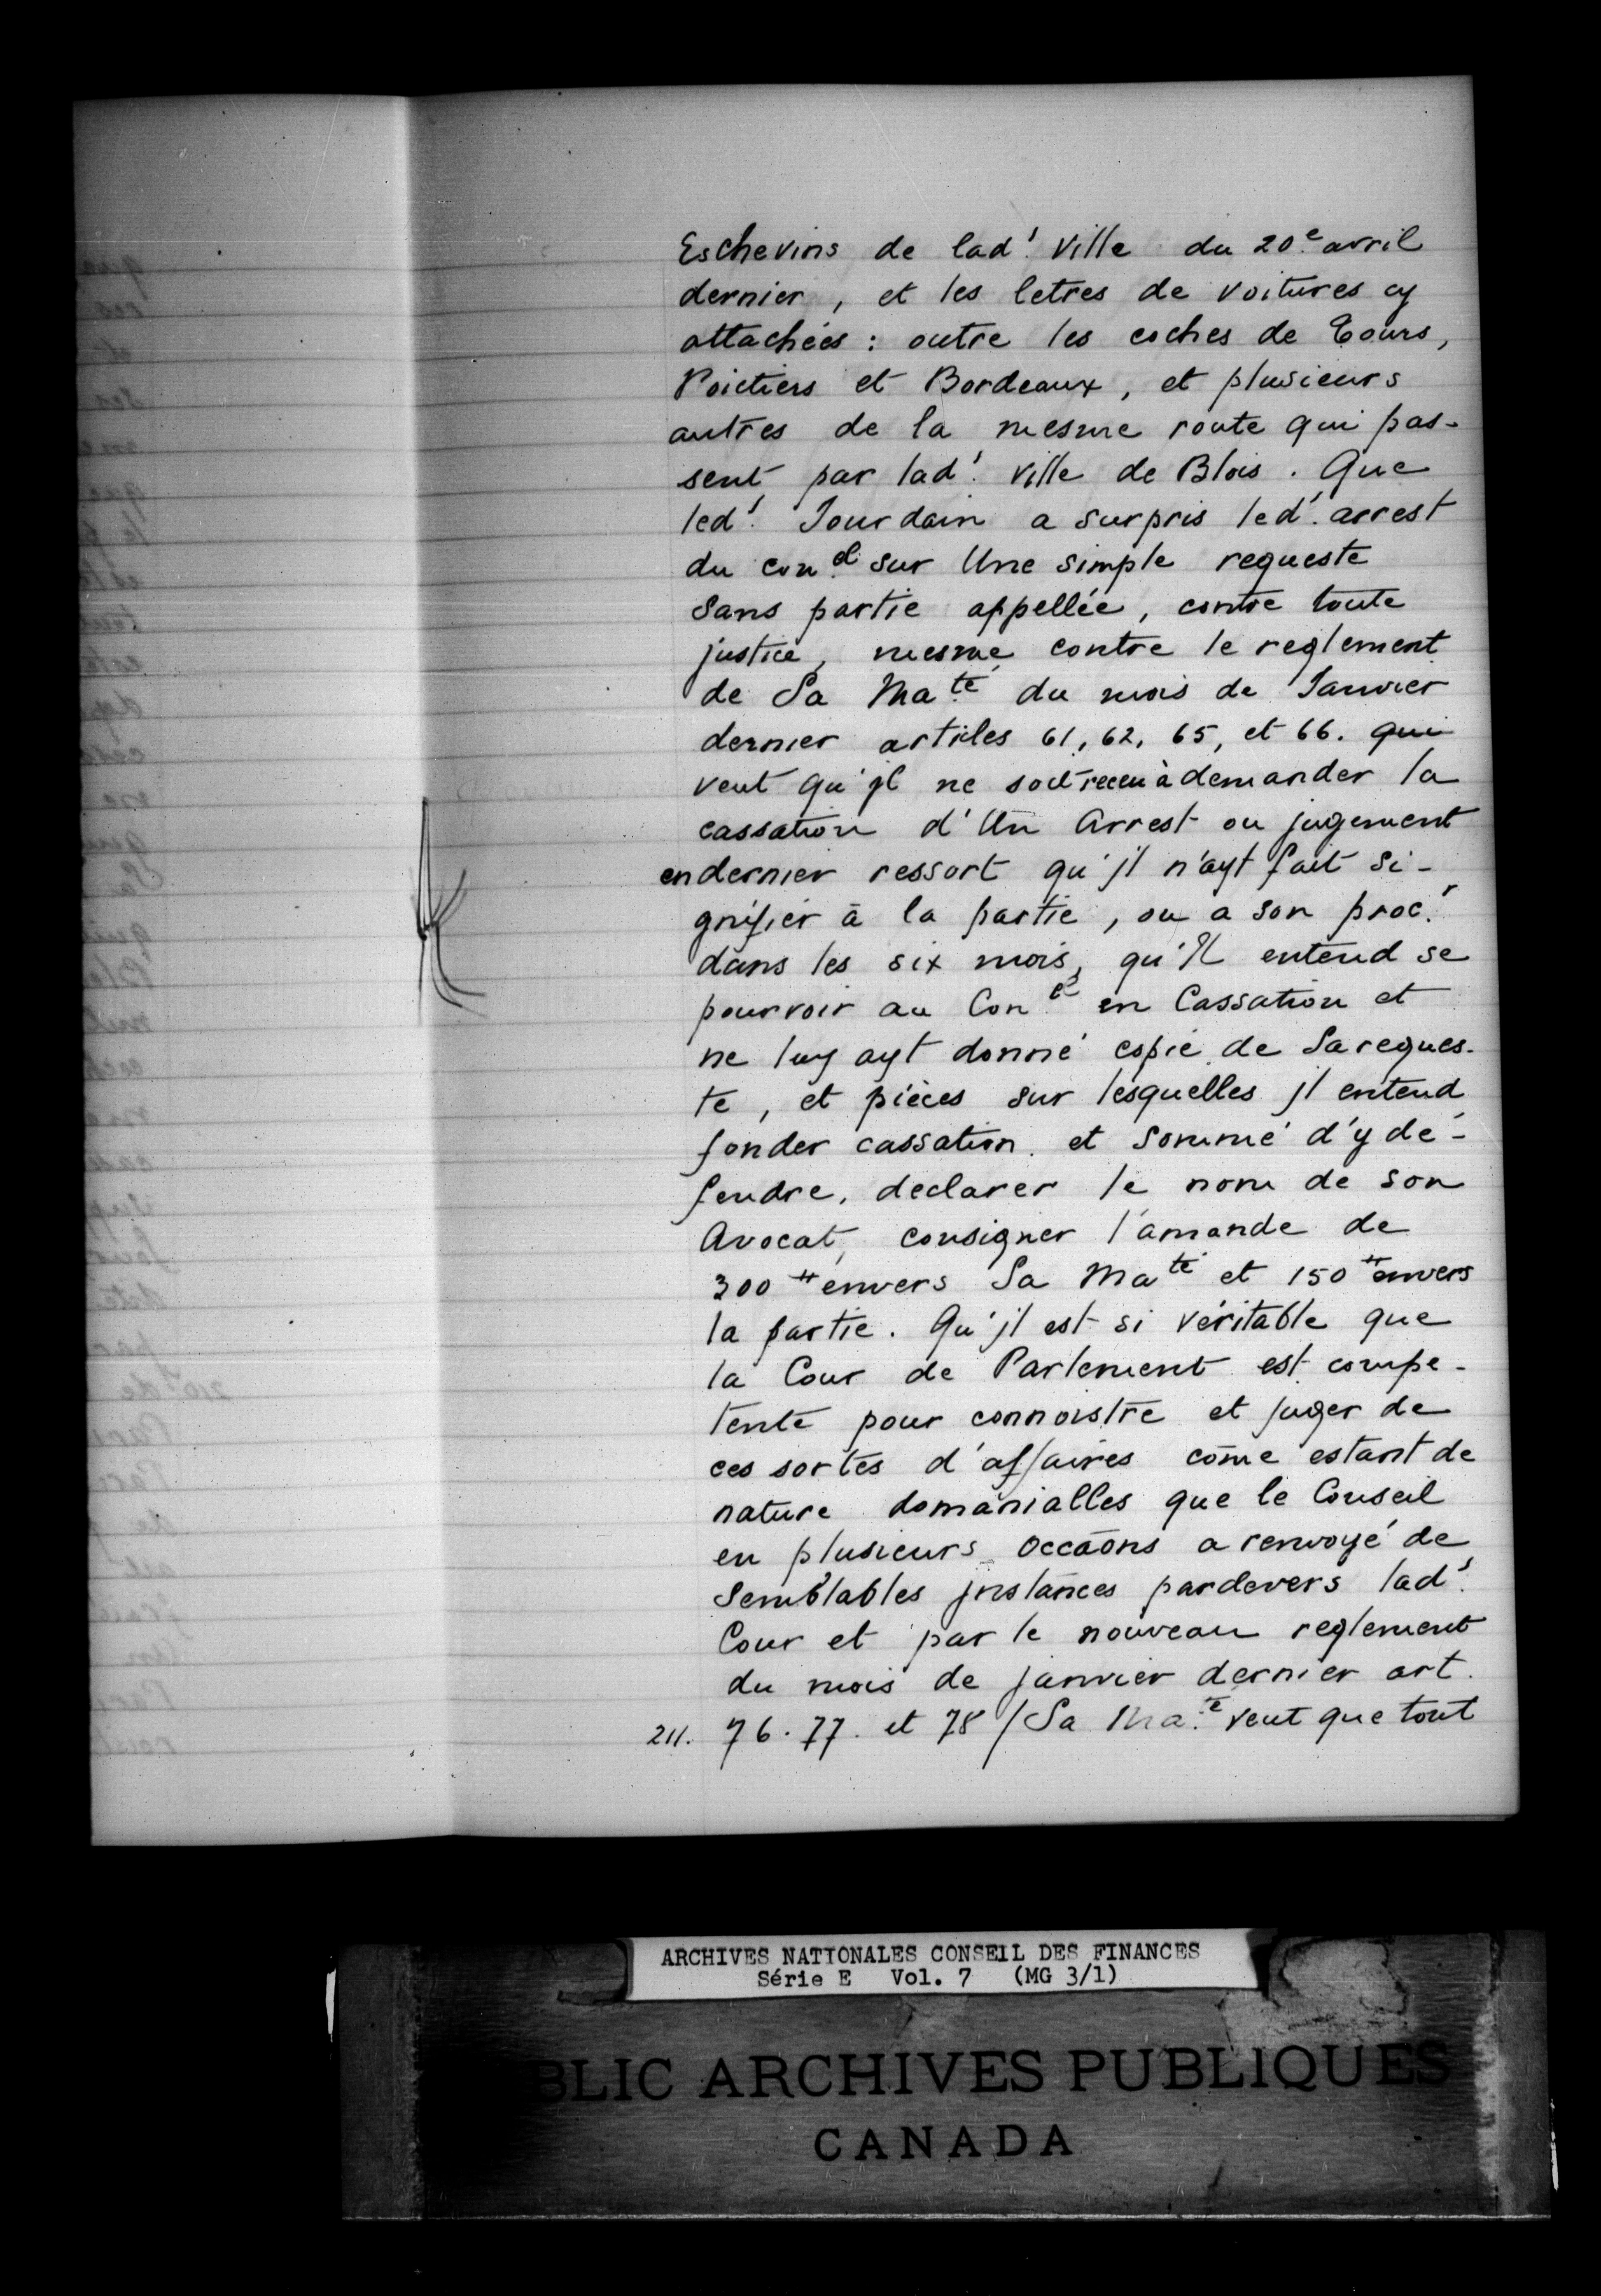 Eschevins de lad! Ville du 20e avril
dernier, et les letres de voitures cy
attachées : outre les coches de Tours,
Poictiers et Bordeaux, et plusieurs
autres de la mesme route qui pas-
sent par lad! ville de Blois. Que
led! Jourdain a surpris led! arrest
du con.el sur Une simple requeste
sans partie appellée, contre toute
justice, mesme contre le reglement
de Sa Ma.té du mois de Janvier
dernier articles 61, 62, 65, et 66. qui
veut qu'jl ne soit receu à demander la
cassation d'Un Arrest ou jugement
en dernier ressort qu'jl n'ayt fait si-
gnifier à la partie, ou a son proc.r
dans les six mois, qu'Il entend se
pourvoir au Con.el en Cassation et
ne luy ayt donné copie de Sa reques-
te, et pièces sur lesquelles jl entend
fonder cassation et sommé d'y dé-
fendre, declarer le nom de son
Avocat, consigner l'amande de
300 ₶ envers Sa Ma.té et 150 ₶ envers
la partie. Qu'jl est si véritable que
la Cour de Parlement est compe-
tente pour connoistre et juger de
ces sortes d'affaires cōme estant de
nature domanialles que le Conseil
en plusieurs occāons a renvoyé de
Semblables jnstances pardevers lad!
Cour et par le nouveau reglement
du mois de janvier dernier art.
211. 76. 77. et 78 / Sa Ma.té veut que tout
ARCHIVES NATIONALES CONSEIL DES FINANCES
Série E Vol. 7 (MG 3/1)
BLIC ARCHIVES PUBLIQUES
CANADA